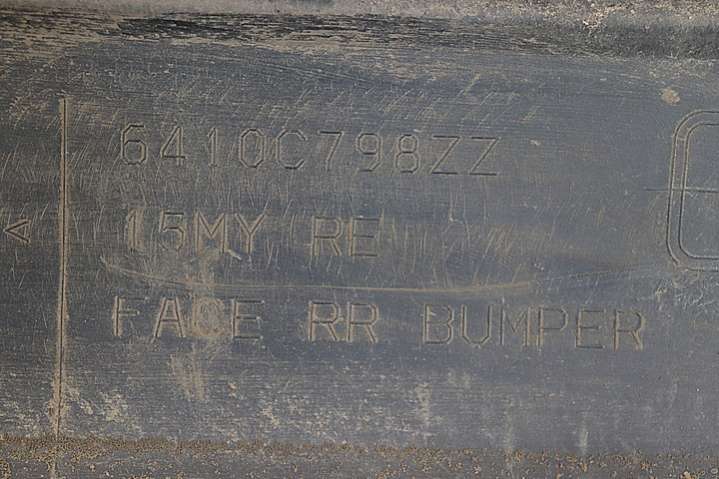 6410C798ZZ
15MY RE
FACE RR BUMPER